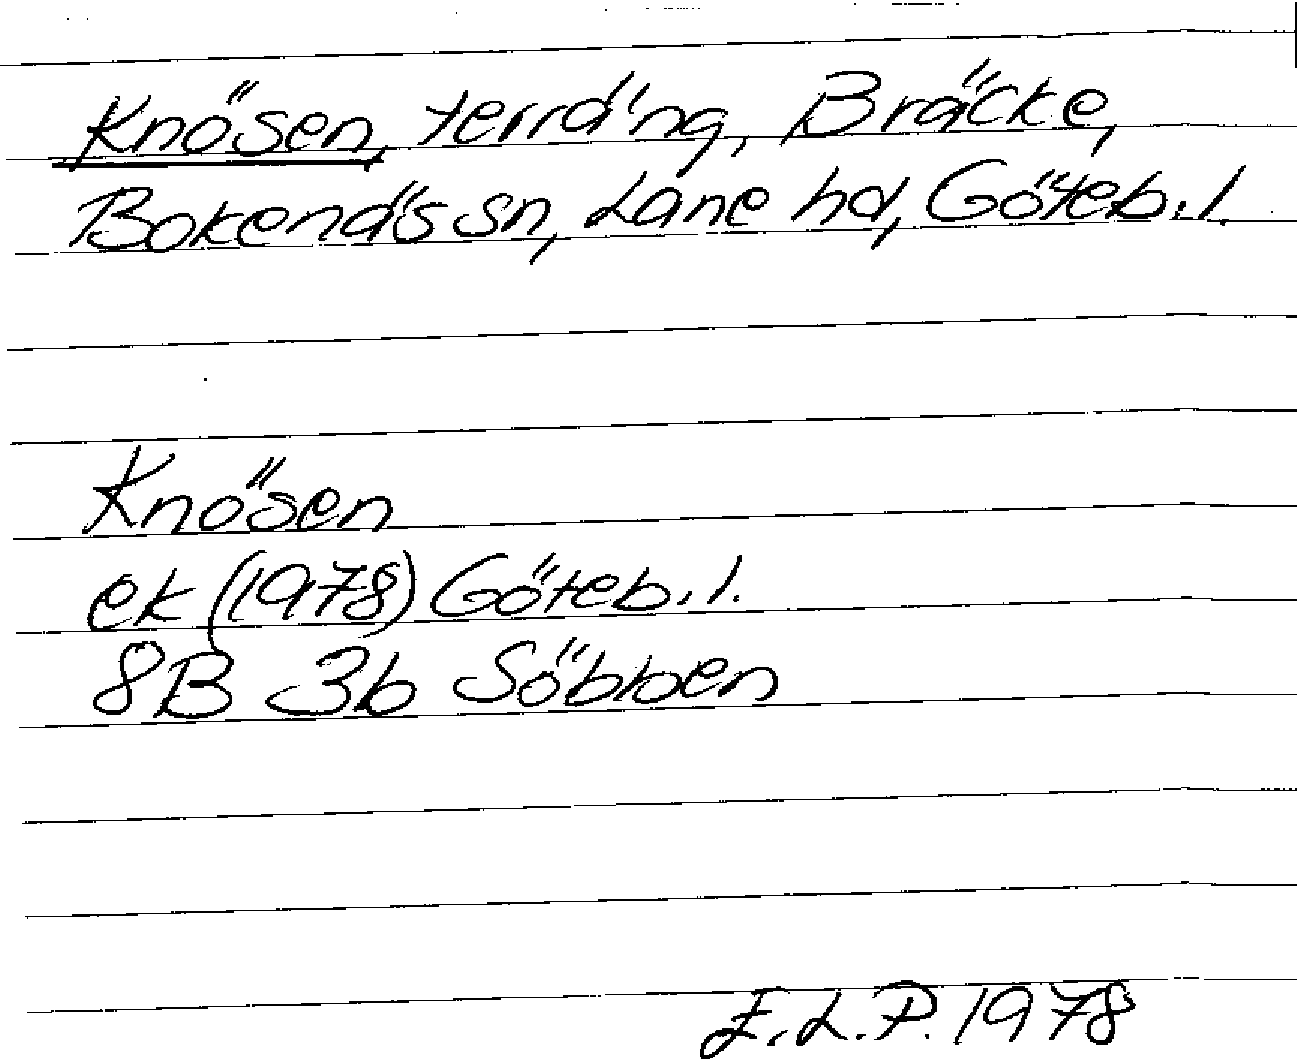 Knösen, terräng, Bräcke,
Bokenäs sn, Lane hd, Göteb. l.
Knösen
ek (1978) Göteb. l.
8B 3b Söbben
E.L.P. 1978